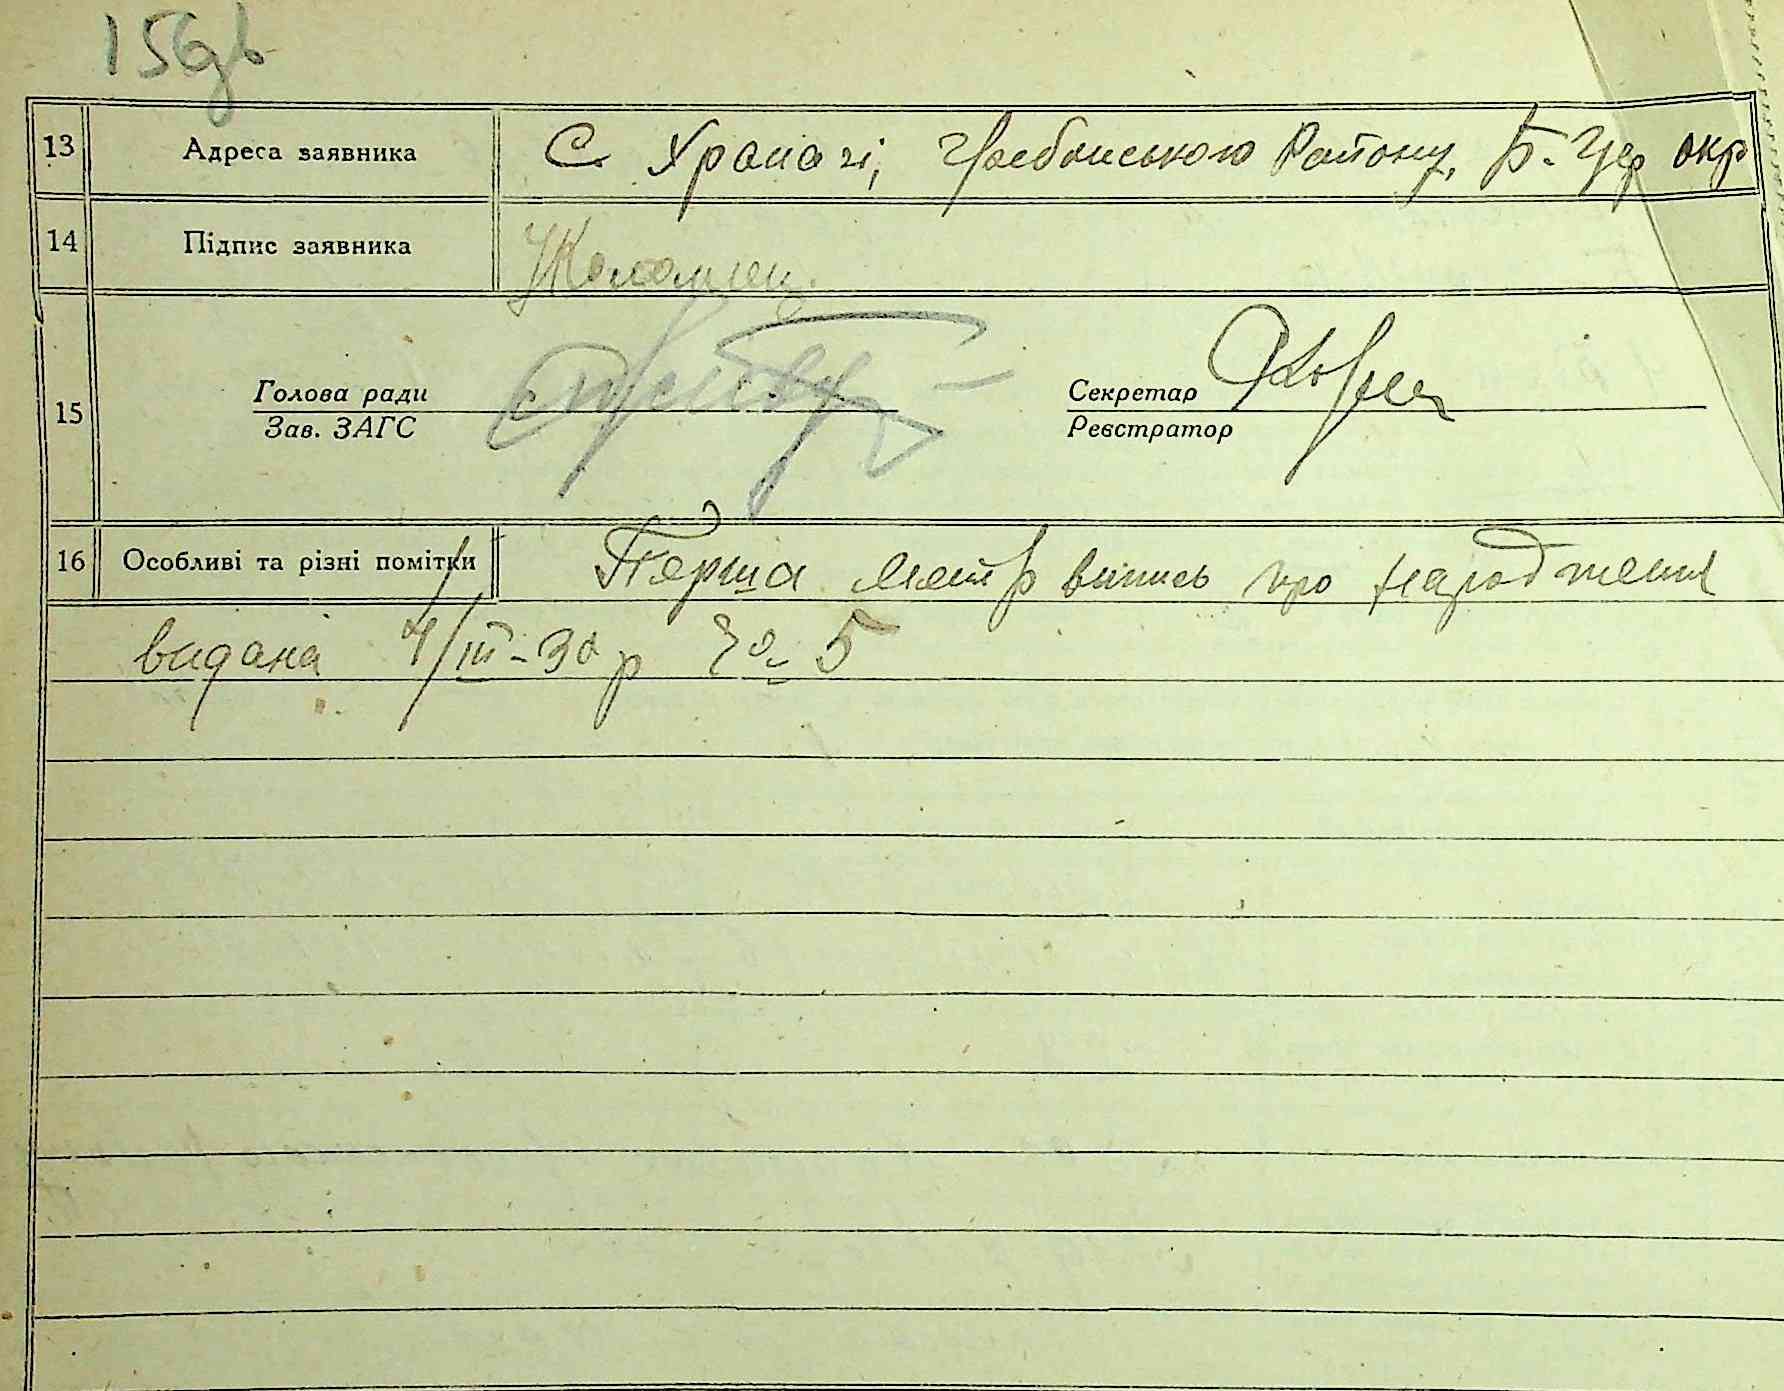 15 зв
13 Адреса заявника С. Храпачі, Гребонського Району, Б-Цер окр
14 Підпис заявника Коломиец
15 Голова ради
Зав. ЗАГС
Секретар
Реєстратор
16 Особливі та різні помітки Перша метр випись про народження
видана 4/III-30 р № 5